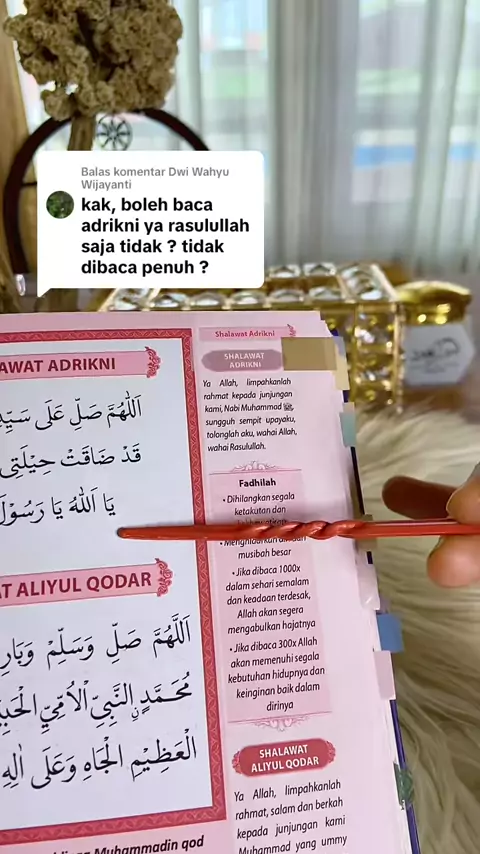 Balas komentar Dwi Wahyu
Wijayanti
kak, boleh baca
adrikni ya rasulullah
saja tidak ? tidak
dibaca penuh ?
Shalawat Adrikni
ADRIKNI
اَللّٰهُمَّ صَلِّ عَلَى
قَدْ ضَاقَتْ حِيْلَتِى
يَا اَللّٰهُ يَا
SHALAWAT
ADRIKNI
Ya Allah, limpahkanlah
rahmat kepada junjungan
kami, Nabi Muhammad ﷺ,
sungguh sempit upayaku,
tolonglah aku, wahai Allah,
wahai Rasulullah.
Fadhilah
• Dihilangkan segala
ketakutan dan
musibah besar
• Jika dibaca 1000x
dalam sehari semalam
dan keadaan terdesak,
Allah akan segera
mengabulkan hajatnya
• Jika dibaca 300x Allah
akan memenuhi segala
kebutuhan hidupnya dan
keinginan baik dalam
dirinya
ALIYUL QODAR
اَللّٰهُمَّ صَلِّ وَسَلِّمْ
مُحَمَّدٍ النَّبِيِّ الْاُمِّيِّ
الْعَظِيْمِ الْجَاهِ وَعَلَى اٰلِهِ
SHALAWAT
ALIYUL QODAR
Ya Allah, limpahkanlah
rahmat, salam dan berkah
kepada junjungan kami
Muhammad yang ummy
Muhammadin qod